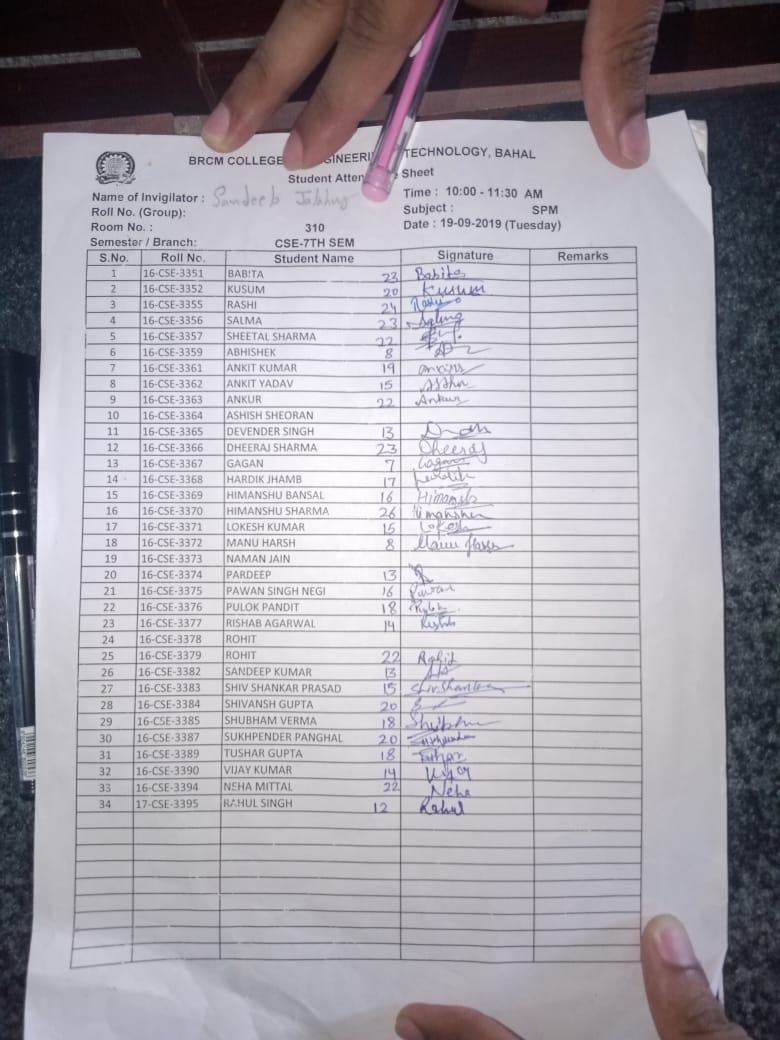 BRCM COLLEGE TECHNOLOGY, BAHAL
Student Sheet
Name of Invigilator : Sandeep
Time : 10:00 - 11:30 AM
Roll No. (Group):
Subject : SPM
Room No. : 310
Date : 19-09-2019 (Tuesday)
Semester / Branch: CSE-7TH SEM
S.No. Roll No. Student Name Signature Remarks
1 16-CSE-3351 BABITA 23 Babita
2 16-CSE-3352 KUSUM 20 Kusum
3 16-CSE-3355 RASHI 24 Rashi
4 16-CSE-3356 SALMA 23 Salma
5 16-CSE-3357 SHEETAL SHARMA 22
6 16-CSE-3359 ABHISHEK 8
7 16-CSE-3361 ANKIT KUMAR 19
8 16-CSE-3362 ANKIT YADAV 15
9 16-CSE-3363 ANKUR 22 Ankur
10 16-CSE-3364 ASHISH SHEORAN
11 16-CSE-3365 DEVENDER SINGH 13
12 16-CSE-3366 DHEERAJ SHARMA 23 Dheeraj
13 16-CSE-3367 GAGAN 7 Gagan
14 16-CSE-3368 HARDIK JHAMB 17
15 16-CSE-3369 HIMANSHU BANSAL 16
16 16-CSE-3370 HIMANSHU SHARMA 26 Himanshu
17 16-CSE-3371 LOKESH KUMAR 15 Lokesh
18 16-CSE-3372 MANU HARSH 8 Manu Harsh
19 16-CSE-3373 NAMAN JAIN
20 16-CSE-3374 PARDEEP 13
21 16-CSE-3375 PAWAN SINGH NEGI 16 Pawan
22 16-CSE-3376 PULOK PANDIT 18
23 16-CSE-3377 RISHAB AGARWAL 14
24 16-CSE-3378 ROHIT
25 16-CSE-3379 ROHIT 22 Rohit
26 16-CSE-3382 SANDEEP KUMAR 13
27 16-CSE-3383 SHIV SHANKAR PRASAD 15
28 16-CSE-3384 SHIVANSH GUPTA 20
29 16-CSE-3385 SHUBHAM VERMA 18
30 16-CSE-3387 SUKHPENDER PANGHAL 20
31 16-CSE-3389 TUSHAR GUPTA 18 Tushar
32 16-CSE-3390 VIJAY KUMAR 14 Vijay
33 16-CSE-3394 NEHA MITTAL 22 Neha
34 17-CSE-3395 RAHUL SINGH 12 Rahul